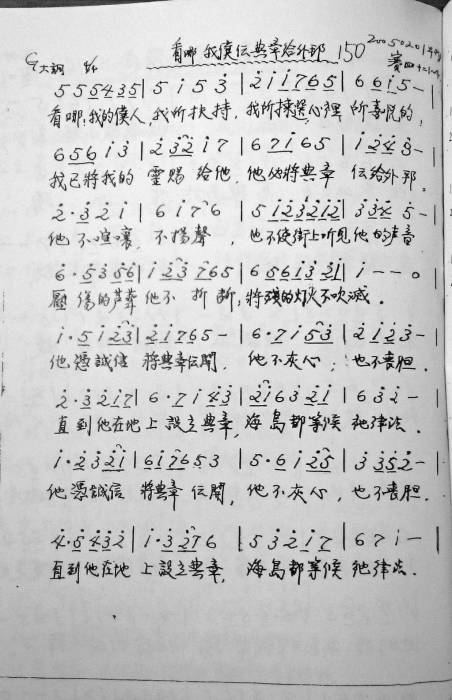 看哪 我僕傳典章給外邦 150 20050201
G大調 4/4 賽四十二1-4
5 5 5 5 4 3 5 | 5 i 5 3 | 2 i i 7 6 5 | 6 6 i 5 - |
看哪,我的僕人,我所扶持,我所揀選心裡 所喜悅的,
6 5 6 i 3 | 2 3 2 i 7 | 6 7 i 6 5 | i 2 4 3 - |
我已將我的 靈賜給他,他必將典章 傳給外邦。
2 · 3 2 i | 6 i 7 6 | 5 i 2 3 2 i 2 | 3 3 4 5 - |
他不喧嚷,不揚聲,也不使街上听見他的声音
6 · 5 3 5 6 | i 2 3 7 6 5 | 6 5 6 i 3 2 i | i - - 0
壓傷的芦葦他不 折断,將殘的灯火不吹滅。
i · 5 i 2 3 | 2 i 7 6 5 - | 6 · 7 i 5 3 | 2 i 2 3 - |
他憑誠信 將典章傳開,他不灰心;也不喪胆.
2 · 3 2 i 7 | 6 · 7 i 4 3 | 2 i 6 3 2 i | 6 3 2 - |
直到他在地上設立典章,海島都等候 祂律法.
i · 2 3 2 i | 6 i 7 6 5 3 | 5 · 6 i 2 5 | 3 3 5 2 - |
他憑誠信 將典章 傳開,他不灰心,也不喪胆.
4 · 5 4 3 2 | i · 3 2 7 6 | 5 3 2 i 7 | 6 7 i - |
直到他在地 上設立典章,海島都等候 祂律法.